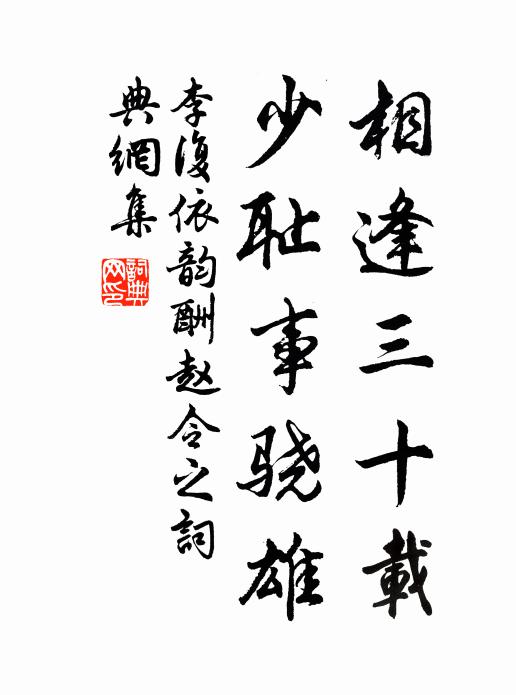 相逢三十載
少耻事骁雄
李復依韵酬赵令之詞
典網集
詞典网印